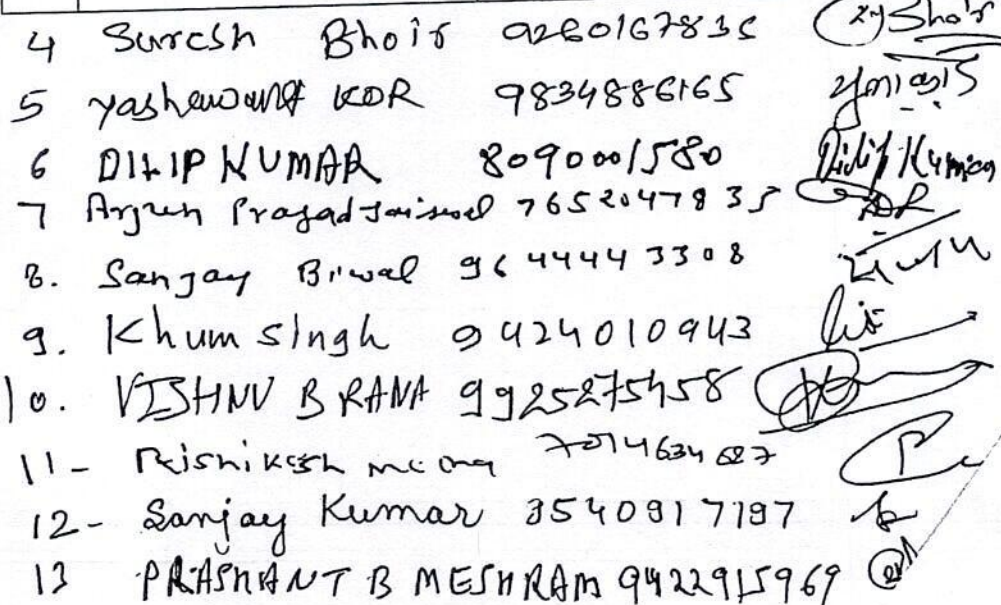 4 Suresh Bhoir 9260167835
5 yashawant KOR 9834886165
6 DILIP KUMAR 8090001580 Dilip Kumar
7 Arjun Prasad Jaiswal 7652047835
8. Sanjay Birwal 9644443308
9. Khum singh 9424010943
10. VISHNU B RANA 9925275458
11- Rishikesh meena 7014634687
12- Sanjay Kumar 3540917197
13 PRASHANT B MESHRAM 9422915969